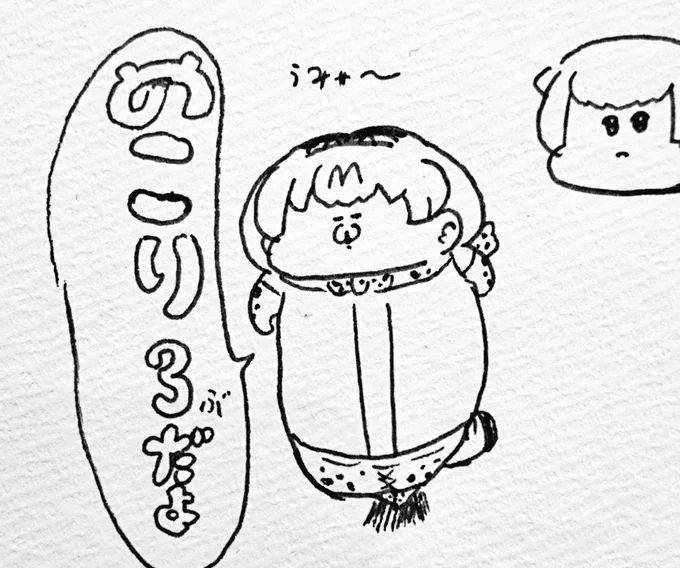 のこり3ぶだよ
うみゃ〜